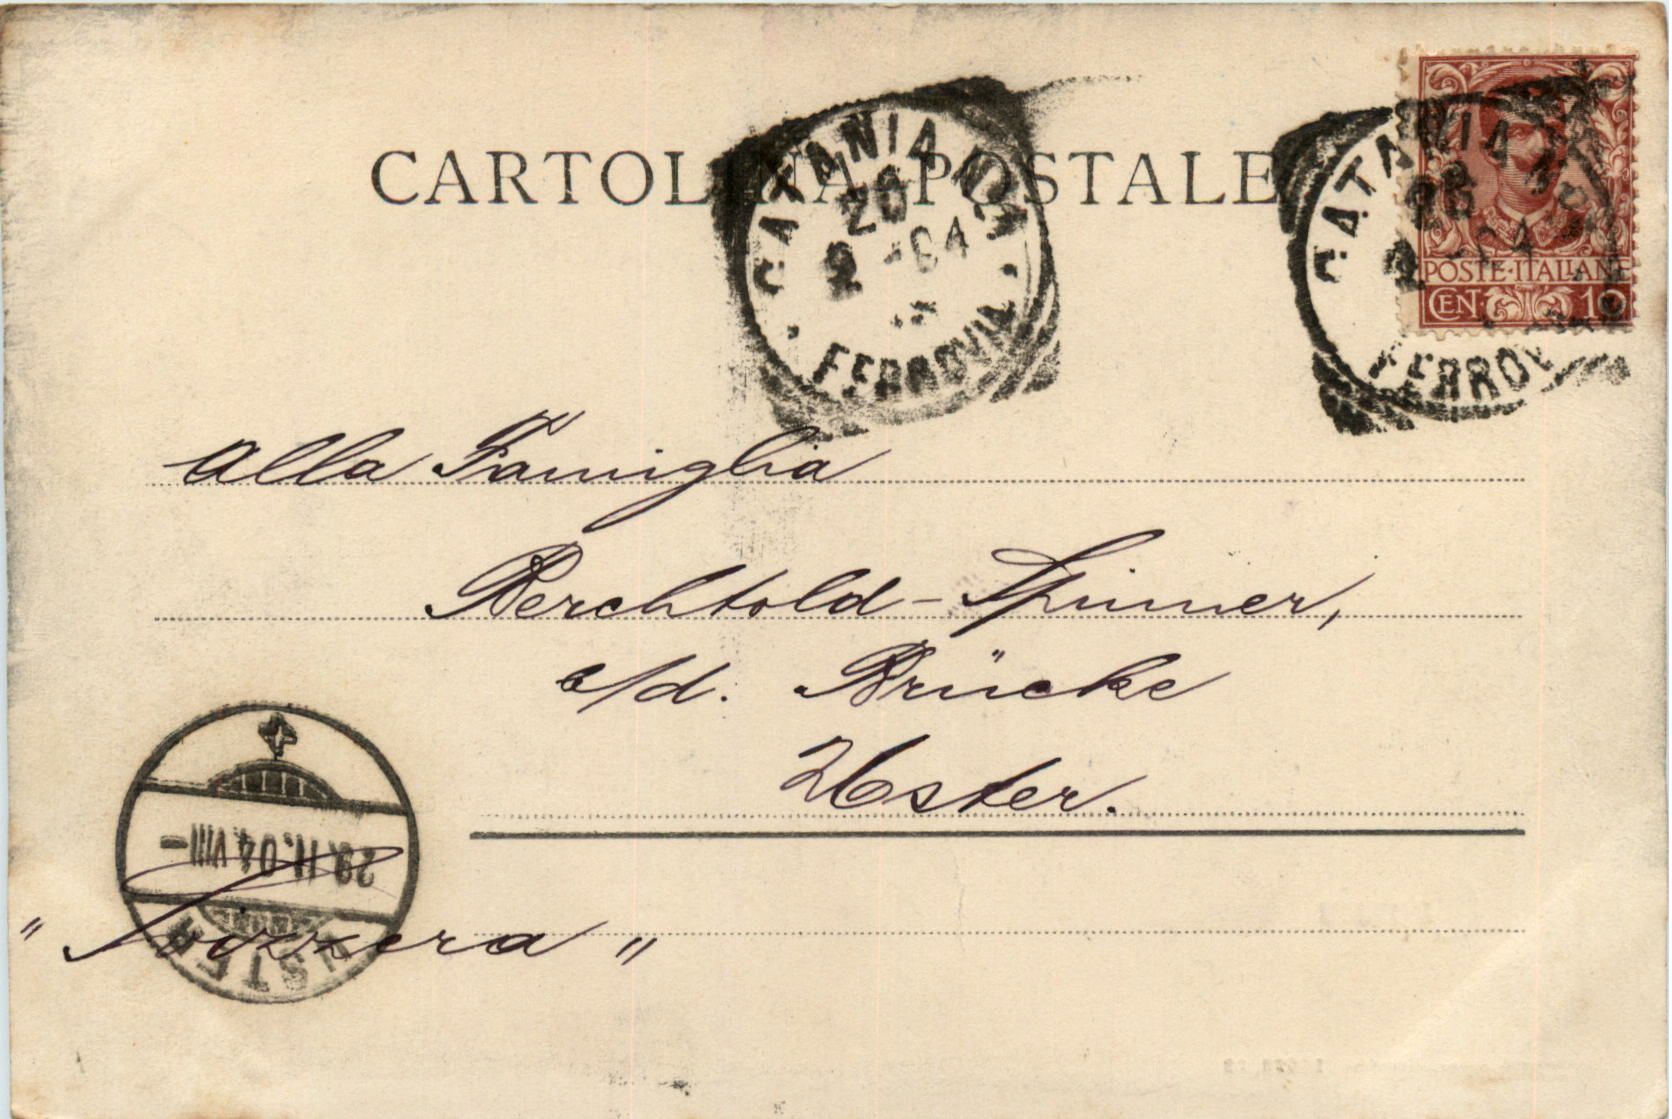 CARTOLINA POSTALE
CATANIA
FERROVIA
26
2 - 04
CATANIA
26
2 - 04
FERROV
POSTE·ITALIANE
CEN· 10
Alla Famiglia
Berchtold-Spinner,
a/d. Brücke
Uster.
"Svizzera"
29.II.04.VIII-
USTER